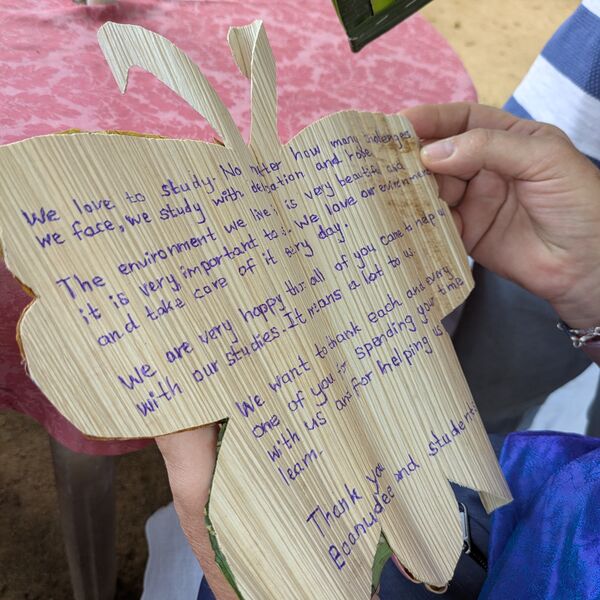 We love to study. No matter how many challenges
we face, we study with dedication and hope
The environment we live, is very beautiful and
it is very important to us. We love our environment
and take care of it every day.
We are very happy that all of you came to help us
with our studies. It means a lot to us.
We want to thank each and every
one of you for spending your time
with us and for helping us
learn.
Thank you
and students